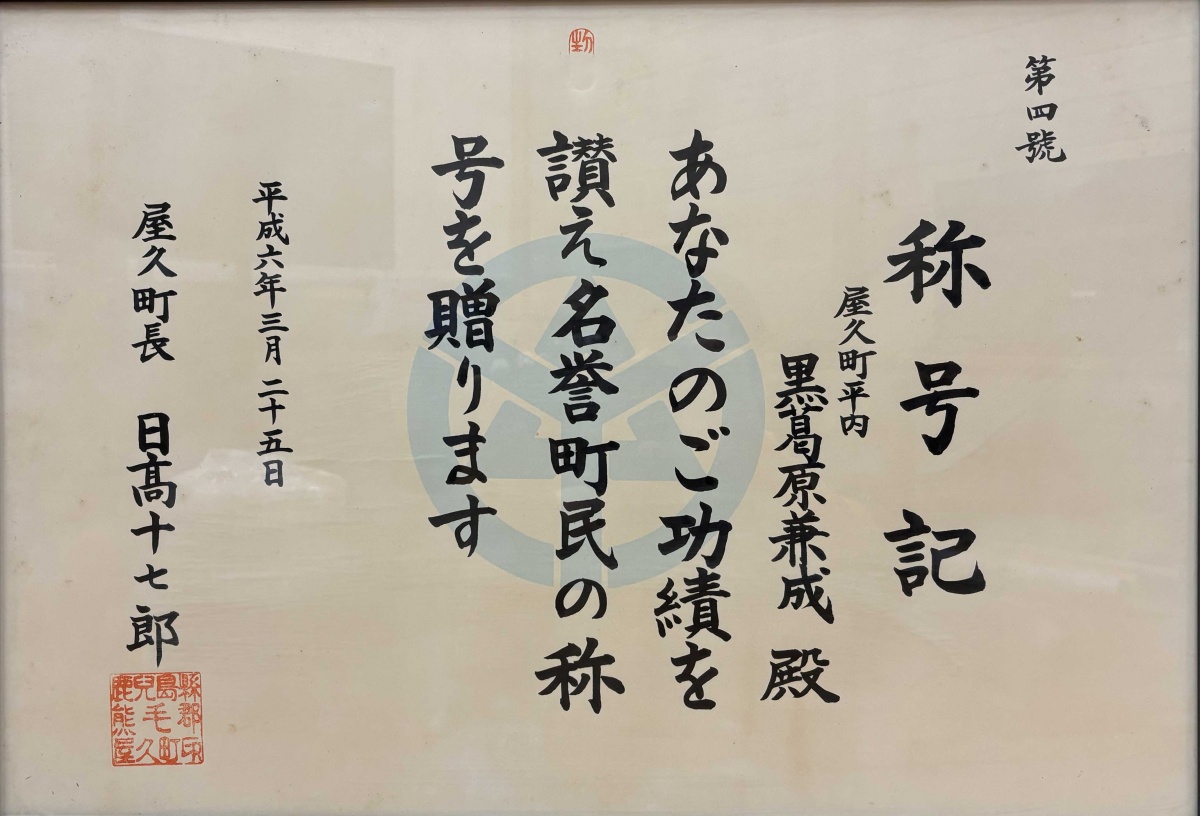 第四號
称号記
屋久町平内
黒葛原兼成殿
あなたのご功績を
讃え名誉町民の称
号を贈ります
平成六年三月二十五日
屋久町長 日髙十七郎